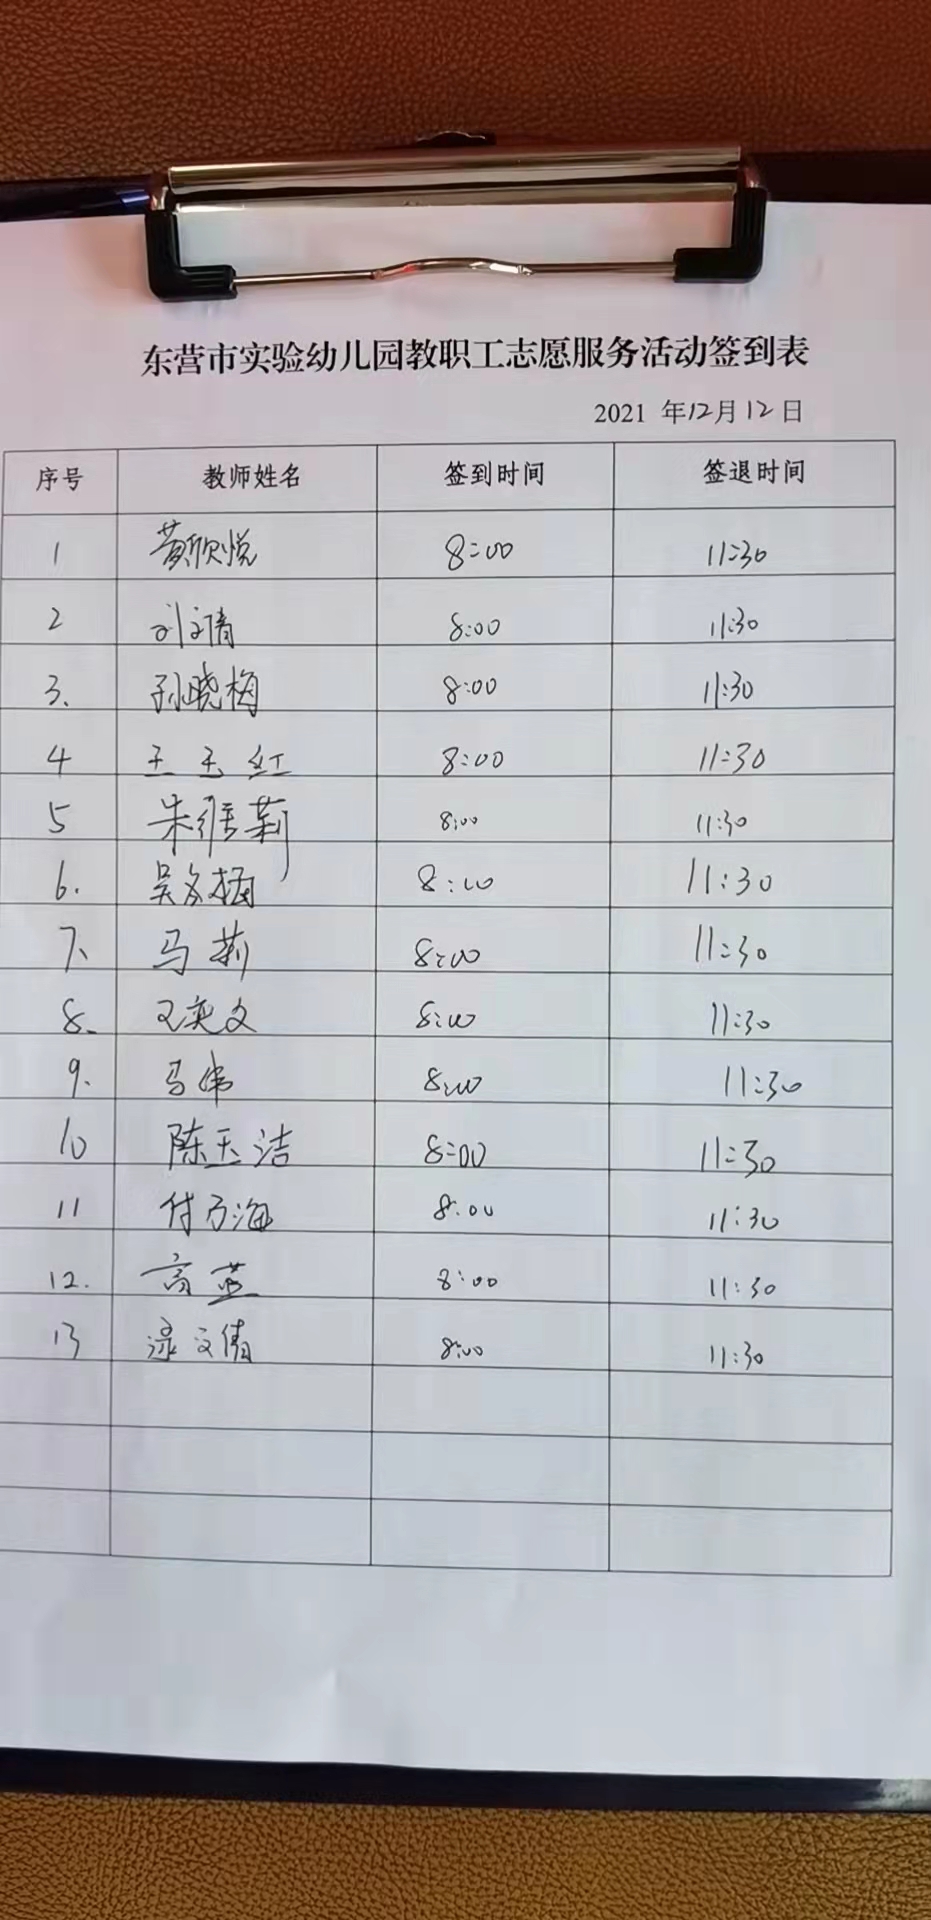 东营市实验幼儿园教职工志愿服务活动签到表
2021 年12月12日
序号 教师姓名 签到时间 签退时间
1 黄欣悦 8:00 11:30
2 刘文清 8:00 11:30
3. 孙晓梅 8:00 11:30
4 王玉红 8:00 11:30
5 朱维莉 8:00 11:30
6. 吴 8:00 11:30
7、 马莉 8:00 11:30
8. 文 8:00 11:30
9. 马伟 8:00 11:30
10 陈玉洁 8:00 11:30
11 付乃海 8:00 11:30
12. 高蓝 8:00 11:30
13 文倩 8:00 11:30